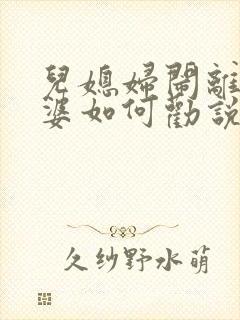 兒媳婦鬧離
婆如何勸說
久紗野水萌